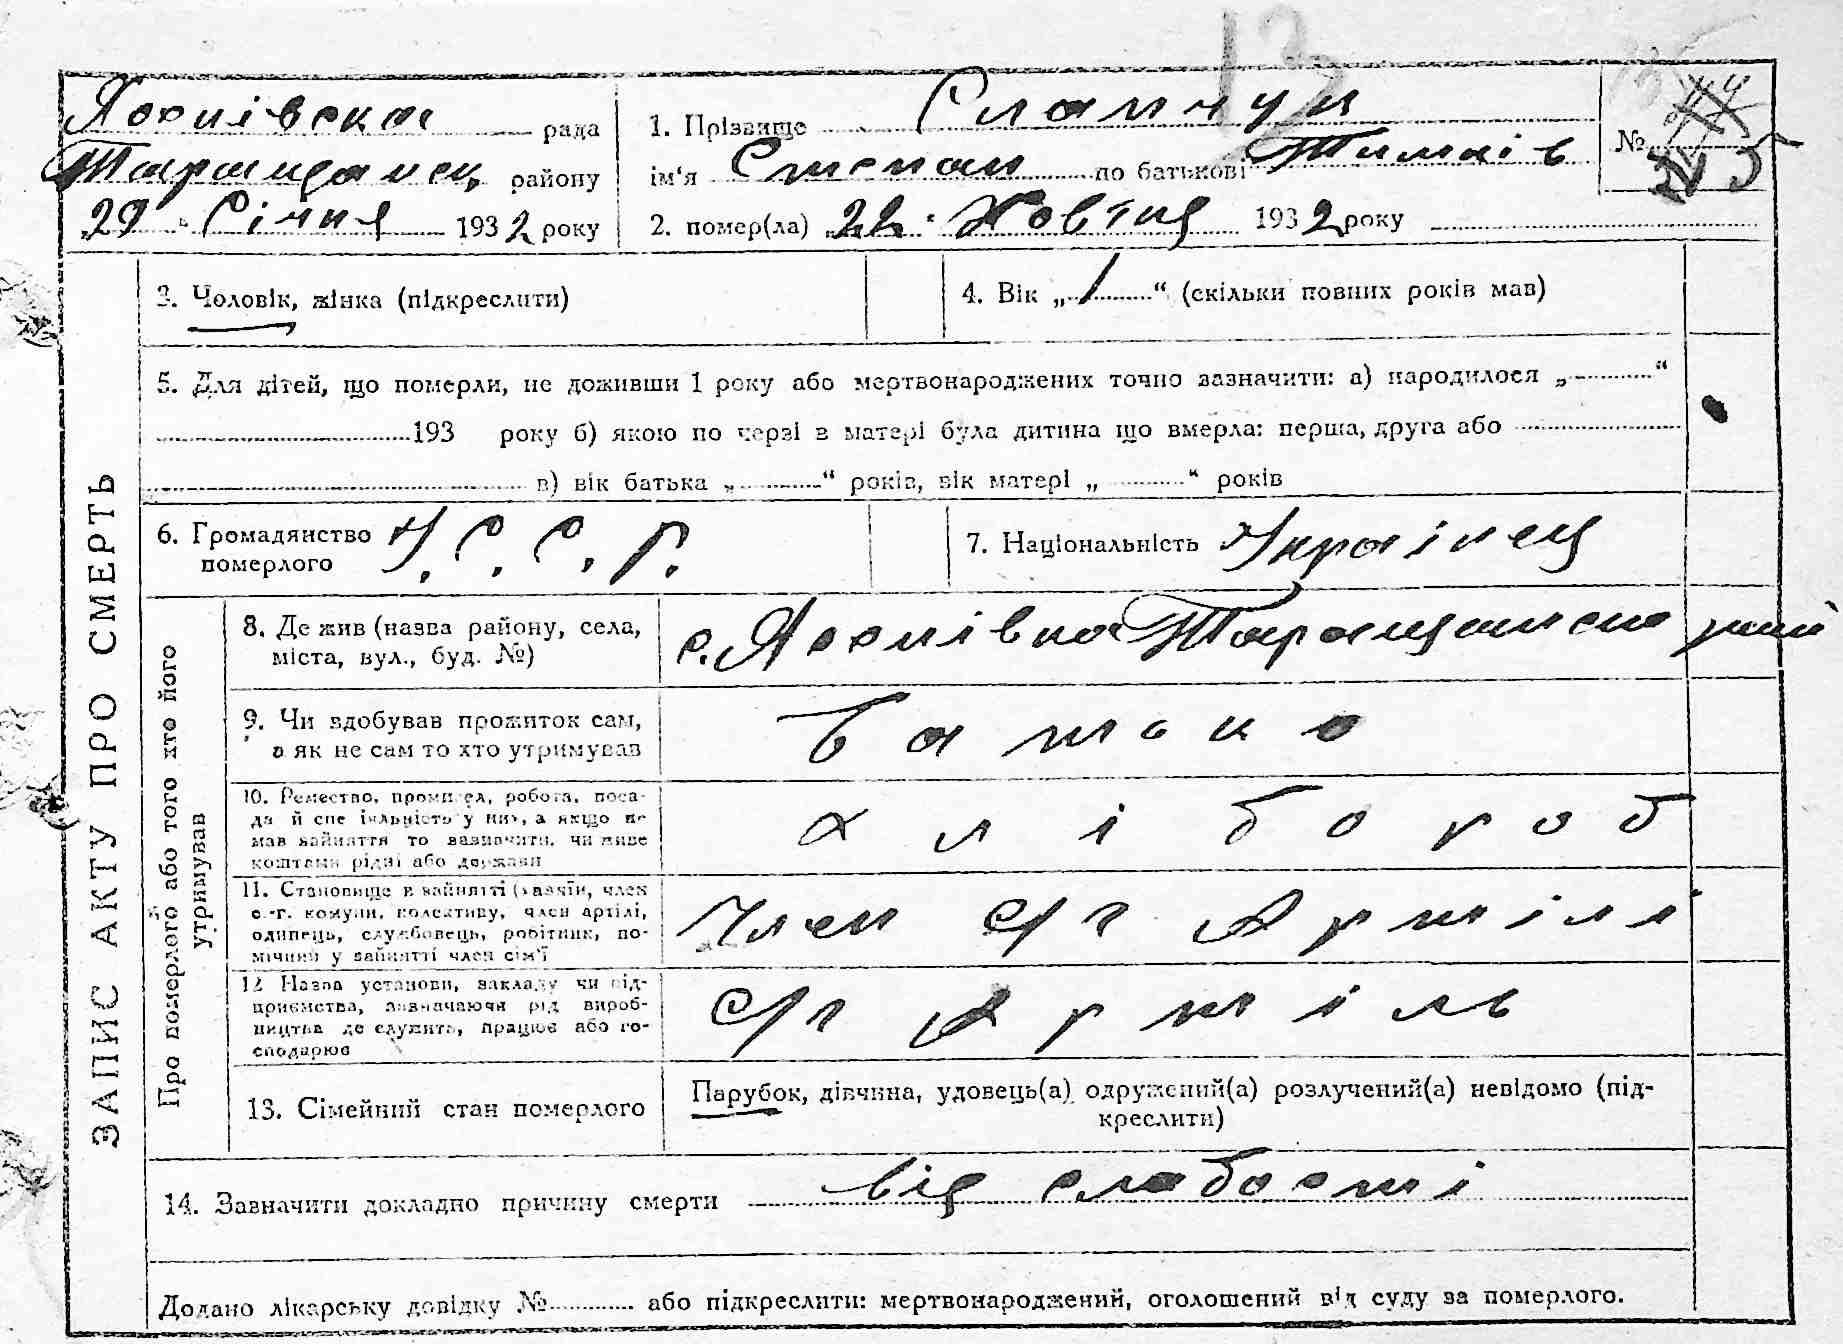 13
Лоснівська рада
Таращанськ району
„29“ Січня 1932 року
1. Прізвище Слапчук
ім'я Степан по батькові Тимків
2. помер(ла) „22“ Жовтня 1932 року
№ 245
ЗАПИС АКТУ ПРО СМЕРТЬ
3. Чоловік, жінка (підкреслити)
4. Вік „1“ (скільки повних років мав)
5. Для дітей, що померли, не доживши 1 року або мертвонароджених точно зазначити: а) народилося „ “
193 року б) якою по черзі в матері була дитина що вмерла: перша, друга або
в) вік батька „ “ років, вік матері „ “ років
6. Громадянство
померлого У.С.С.Р.
7. Національність Українець
Про померлого або того хто його
утримував
8. Де жив (назва району, села,
міста, вул., буд. №)
9. Чи здобував прожиток сам,
а як не сам то хто утримував
батько
10. Ремество, промисел, робота, поса-
да й спеціяльність у них, а якщо не
мав зайняття то зазначити, чи живе
коштами рідні або держави
хлібороб
11. Становище в зайнятті (хазяїн, член
с.-г. комуни, колективу, член артілі,
одинець, службовець, робітник, по-
мічний у зайнятті член сім'ї
Член с/г Артілі
12 Назва установи, закладу чи під-
приємства, зазначаючи рід вироб-
ництва де служить, працює або го-
сподарює
с/г Артіль
13. Сімейний стан померлого
Парубок, дівчина, удовець(а) одружений(а) розлучений(а) невідомо (під-
креслити)
14. Зазначити докладно причину смерти від слабості
Додано лікарську довідку № або підкреслити: мертвонароджений, оголошений від суду за померлого.